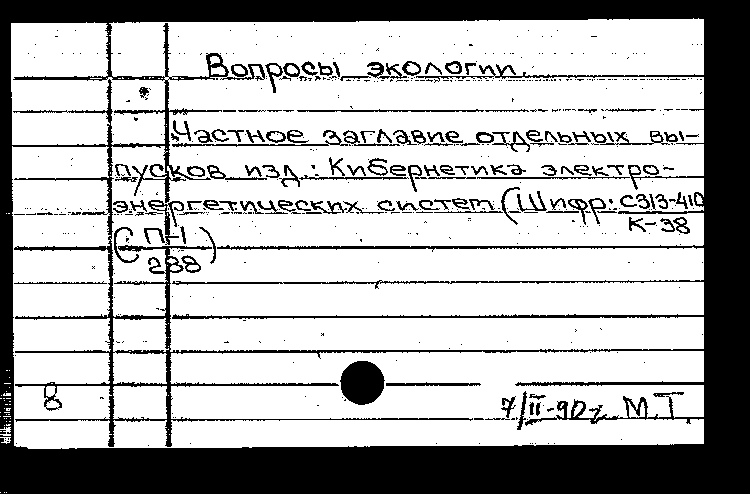 Вопросы экологии.
Частное заглавие отдельных вы-
пусков изд.: Кибернетика электро-
энергетических систем (Шифр: С313-410
К-38
(П-1
288)
8
7/II-90г. М.Т.